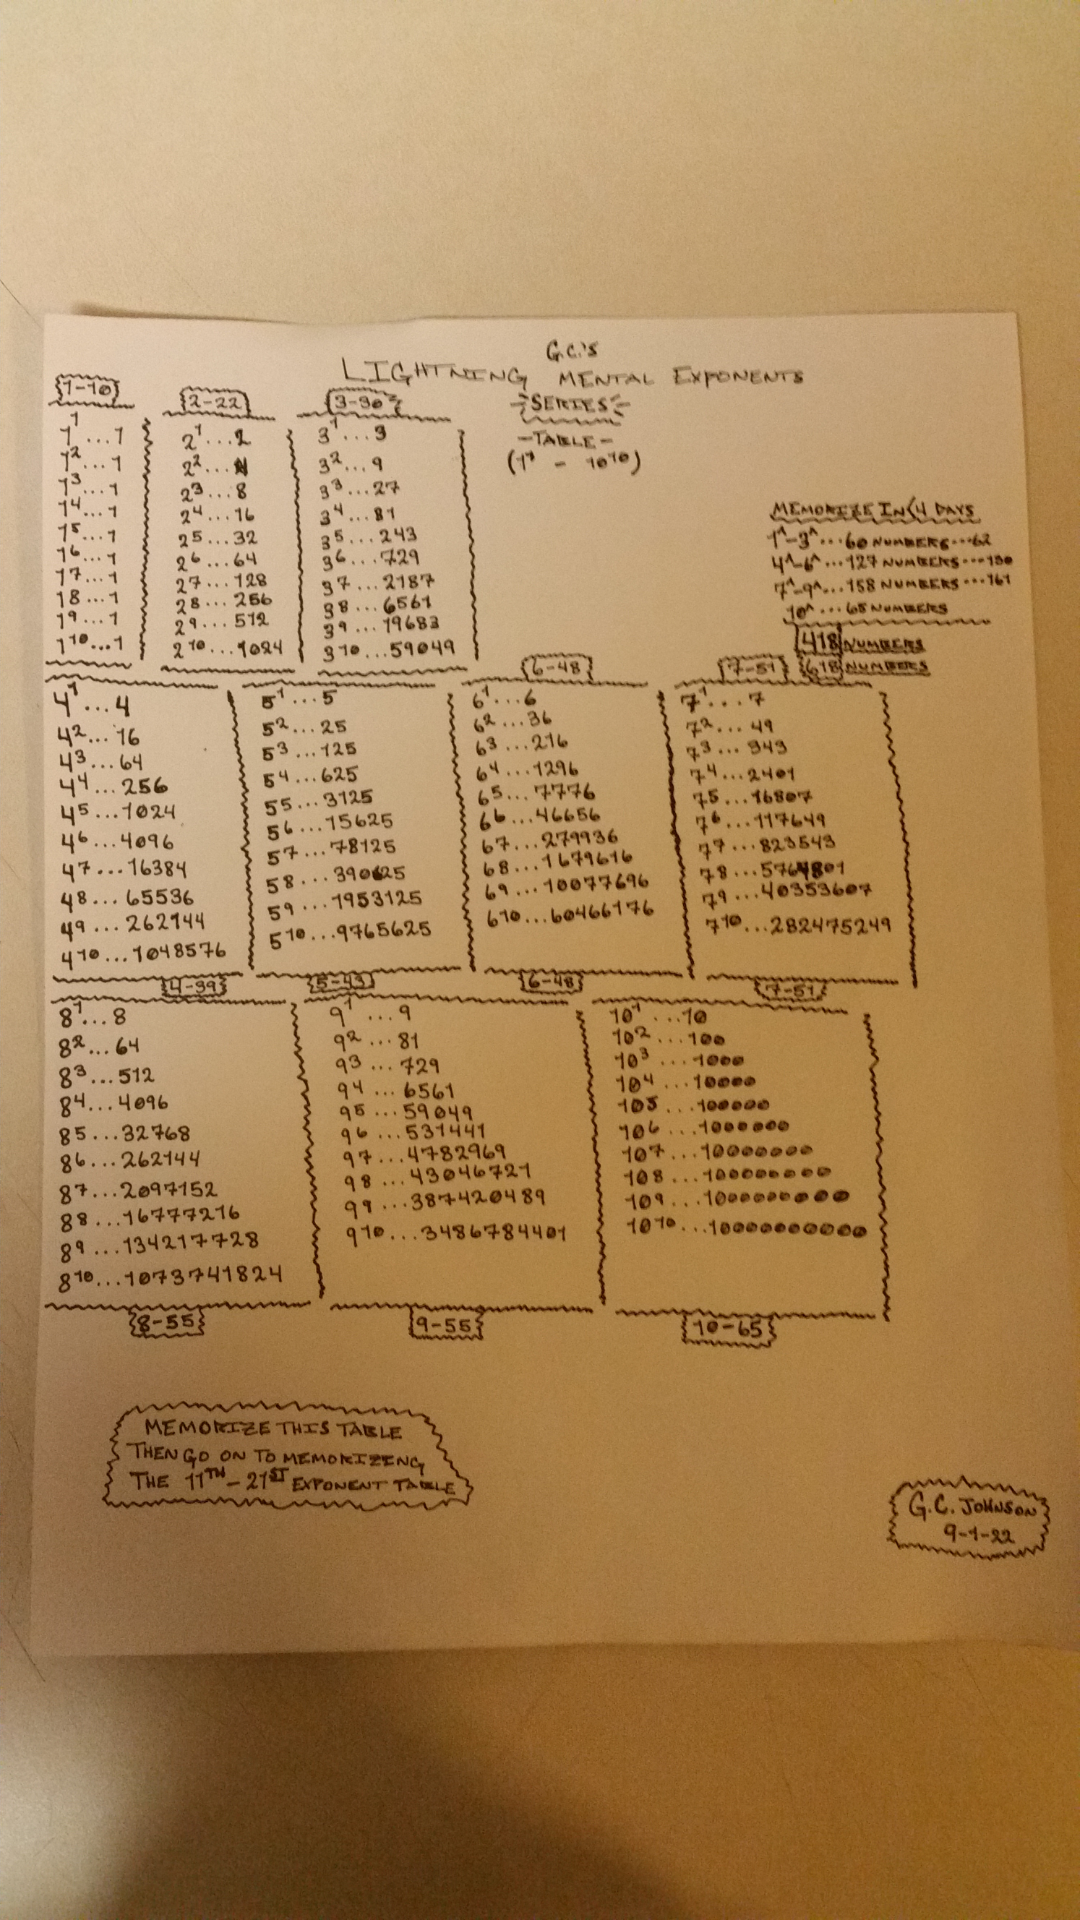 G.C.'S
LIGHTNING MENTAL EXPONENTS
SERIES
-TABLE-
(1¹ - 10¹⁰)
1-10
1¹...1
1²...1
1³...1
1⁴...1
1⁵...1
1⁶...1
1⁷...1
1⁸...1
1⁹...1
1¹⁰...1
2-22
2¹...2
2²...4
2³...8
2⁴...16
2⁵...32
2⁶...64
2⁷...128
2⁸...256
2⁹...512
2¹⁰...1024
3-30
3¹...3
3²...9
3³...27
3⁴...81
3⁵...243
3⁶...729
3⁷...2187
3⁸...6561
3⁹...19683
3¹⁰...59049
MEMORIZE IN 4 DAYS
1^-3^...60 NUMBERS...62
4^-6^...127 NUMBERS...130
7^-9^...158 NUMBERS...161
10^...65 NUMBERS
418 NUMBERS
618 NUMBERS
4¹...4
4²...16
4³...64
4⁴...256
4⁵...1024
4⁶...4096
4⁷...16384
4⁸...65536
4⁹...262144
4¹⁰...1048576
4-39
5¹...5
5²...25
5³...125
5⁴...625
5⁵...3125
5⁶...15625
5⁷...78125
5⁸...390625
5⁹...1953125
5¹⁰...9765625
5-43
6-48
6¹...6
6²...36
6³...216
6⁴...1296
6⁵...7776
6⁶...46656
6⁷...279936
6⁸...1679616
6⁹...10077696
6¹⁰...60466176
6-48
7-51
7¹...7
7²...49
7³...343
7⁴...2401
7⁵...16807
7⁶...117649
7⁷...823543
7⁸...5764801
7⁹...40353607
7¹⁰...282475249
7-51
8¹...8
8²...64
8³...512
8⁴...4096
8⁵...32768
8⁶...262144
8⁷...2097152
8⁸...16777216
8⁹...134217728
8¹⁰...1073741824
8-55
9¹...9
9²...81
9³...729
9⁴...6561
9⁵...59049
9⁶...531441
9⁷...4782969
9⁸...43046721
9⁹...387420489
9¹⁰...3486784401
9-55
10¹...10
10²...100
10³...1000
10⁴...10000
10⁵...100000
10⁶...1000000
10⁷...10000000
10⁸...100000000
10⁹...1000000000
10¹⁰...10000000000
10-65
MEMORIZE THIS TABLE
THEN GO ON TO MEMORIZING
THE 11TH-21ST EXPONENT TABLE
G.C. JOHNSON
9-1-22